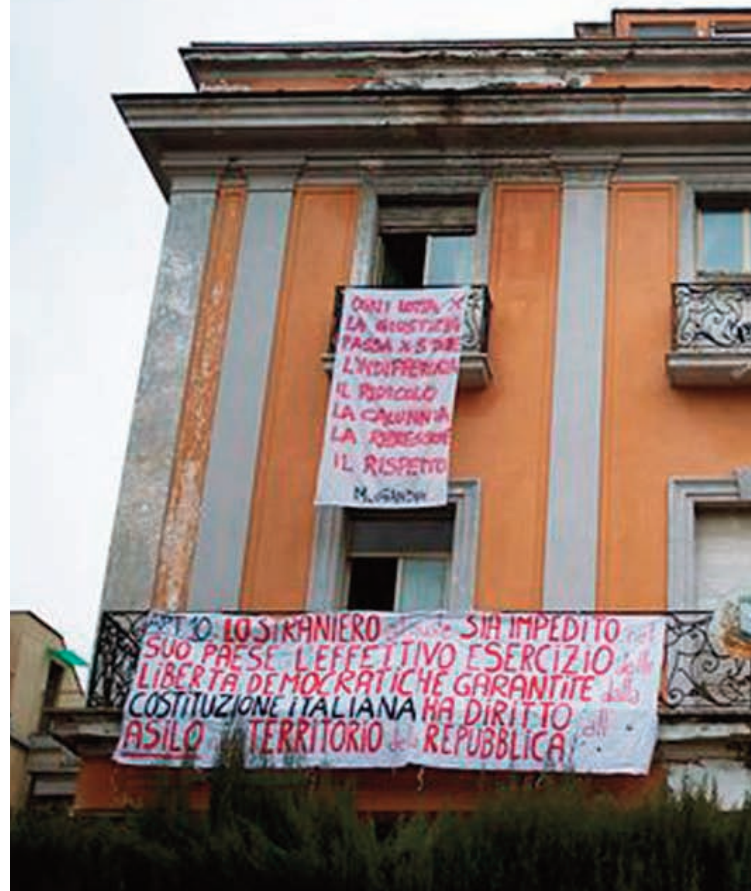 OGNI LOTTA X
LA GIUSTIZIA
PASSA X 5 FASI
L'INDIFFERENZA
IL RIDICOLO
LA CALUNNIA
LA REPRESSIONE
IL RISPETTO
M. GANDHI
ART. 10 LO STRANIERO al quale SIA IMPEDITO nel
SUO PAESE L'EFFETTIVO ESERCIZIO delle
LIBERTÀ DEMOCRATICHE GARANTITE dalla
COSTITUZIONE ITALIANA HA DIRITTO all
ASILO TERRITORIO della REPUBBLICA